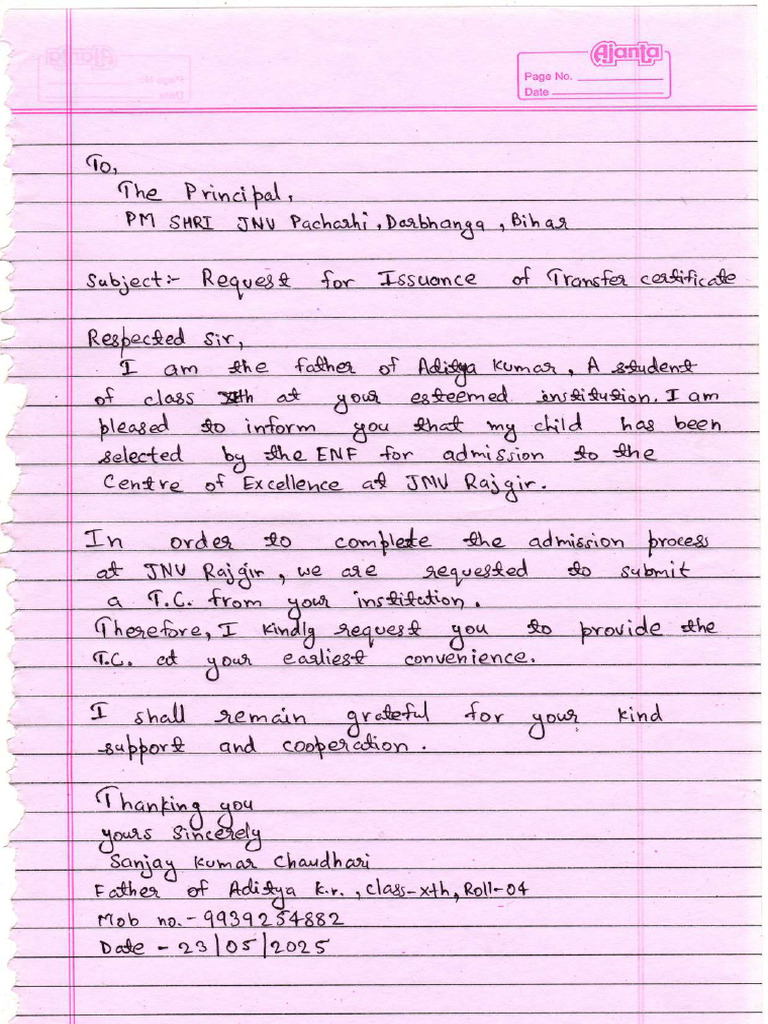 Ajanta
Page No.
Date
To,
The Principal,
PM SHRI JNV Pacharhi, Darbhanga, Bihar
Subject:- Request for Issuance of Transfer certificate
Respected Sir,
I am the father of Aditya Kumar, A student
of class at your esteemed institution. I am
pleased to inform you that my child has been
selected by the ENF for admission to the
Centre of Excellence at JMV Rajgir.
In order to complete the admission process
at JNV Rajgir, we are requested to submit
a T.C. from your institation.
Therefore, I kindly request you to provide the
T.C. at your earliest convenience.
I shall remain grateful for your kind
support and cooperation.
Thanking you
yours Sincerely
Sanjay Kumar Chaudhari
Father of Aditya K.r., Class-xth, Roll-04
Mob no.-9939254882
Date - 23/05/2025